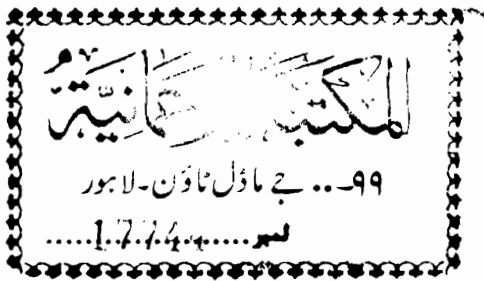 المکتبۃ الرحمانیۃ
۹۹...جے ماڈل ٹاؤن۔لاہور
نمبر.....17744.....